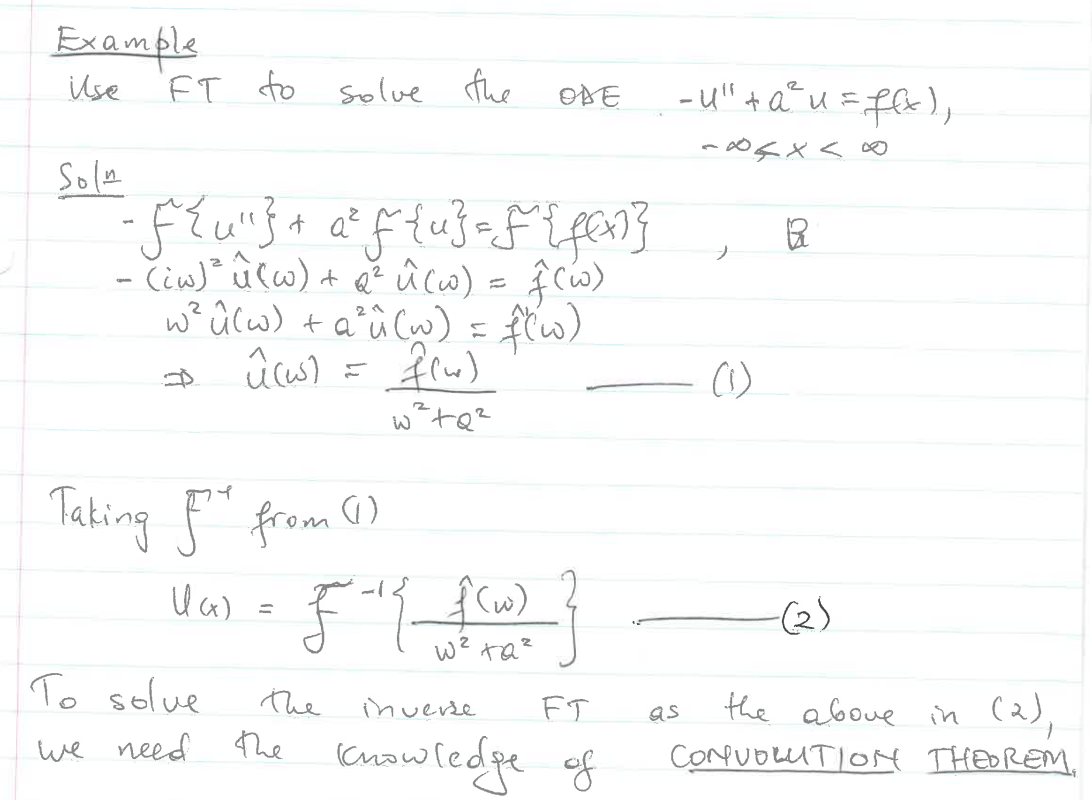 Example
Use FT to solve the ODE -u'' + a² u = f(x),
-∞ < x < ∞
Solⁿ
- F{u''} + a² F{u} = F{f(x)} ,
- (iω)² û(ω) + a² û(ω) = f̂(ω)
ω² û(ω) + a² û(ω) = f̂(ω)
⇒ û(ω) = f̂(ω) / ω² + a² ——— (1)
Taking F⁻¹ from (1)
U(x) = F⁻¹{ f̂(ω) / ω² + a² } ——— (2)
To solve the inverse FT as the above in (2),
we need the knowledge of CONVOLUTION THEOREM.